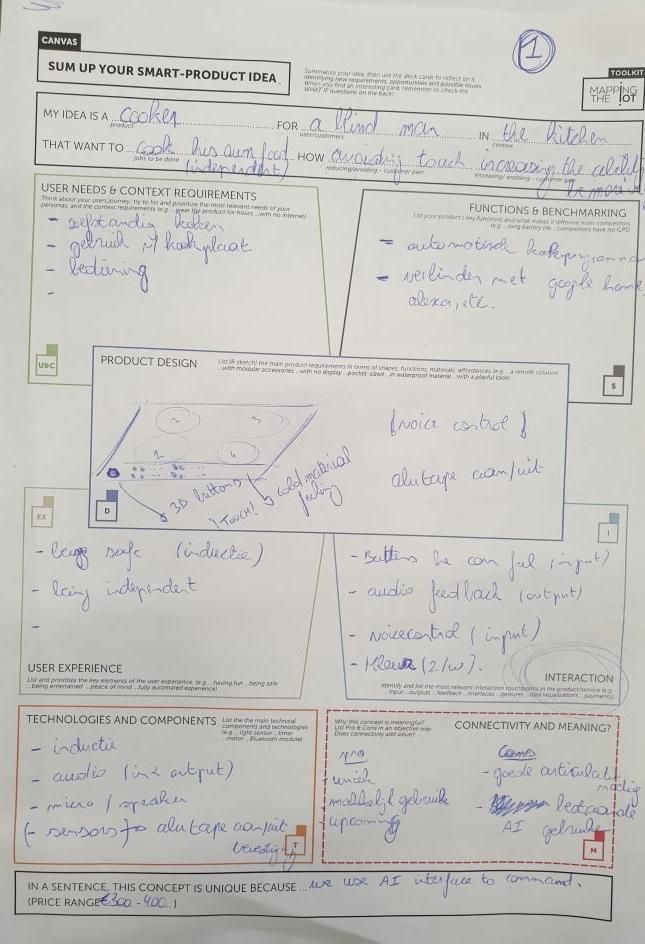 CANVAS
1
SUM UP YOUR SMART-PRODUCT IDEA
Summarize your idea, then use the deck cards to reflect on it,
identifying new requirements, opportunities and possible issues
When you find an interesting card, remember to check the
WHAT IF questions on the back!
TOOLKIT
MAPPING
THE IOT
MY IDEA IS A cooker FOR a blind man IN the kitchen
product users/customers context
THAT WANT TO cook his own food HOW avoiding touch increasing the
(independent) be more
jobs to be done reducing/avoiding - customer pain increasing/enabling - customer gain
USER NEEDS & CONTEXT REQUIREMENTS
Think about your users journey, try to list and prioritize the most relevant needs of your
personas, and the context requirements (e.g. ...wear the product for hours ...with no internet)
- zelfstandig koken
- gebruik v/ kookplaat
- bediening
-
U&C
FUNCTIONS & BENCHMARKING
List your product's key functions and what makes it different from competitors
(e.g. ...long battery life ...competitors have no GPS)
- automatisch kookprogramma
- verbinden met google home,
alexa, etc.
S
PRODUCT DESIGN
List (& sketch) the main product requirements in terms of shapes, functions, materials, affordances (e.g. ...a retrofit solution
...with modular accessories ...with no display ...pocket-sized ...in waterproof material ...with a playful look)
2 3
1 4
3D buttons
! TOUCH!
cold material
feeling
! voice control !
alu tape aan/uit
D
EX
- being safe (inductie)
- being independent
-
USER EXPERIENCE
List and prioritize the key elements of the user experience (e.g. ...having fun ...being safe
...being entertained ...peace of mind ...fully automated experience)
I
- Buttons he can feel (input)
- audio feedback (output)
- voicecontrol (input)
- Kleur (z/w).
INTERACTION
Identify and list the most relevant interaction touchpoints in the product/service (e.g.
...input ...outputs ...feedback ...interfaces ...gestures ...data visualizations ...payments)
TECHNOLOGIES AND COMPONENTS
List the the main technical
components and technologies
(e.g. ...light sensor ...timer
...motor ...Bluetooth module)
- inductie
- audio (in & output)
- micro / speaker
(- sensors) → alu tape aan/uit
bevestig
T
Why this concept is meaningful?
List Pro & Cons in an objective way
Does connectivity add value?
CONNECTIVITY AND MEANING?
pro
- uniek
- makkelijk gebruik
- upcoming
Cons
- goede articulatie
nodig
- bestaande
AI gebruiken
M
IN A SENTENCE, THIS CONCEPT IS UNIQUE BECAUSE ...we use AI interface to command.
(PRICE RANGE €300.-400..)